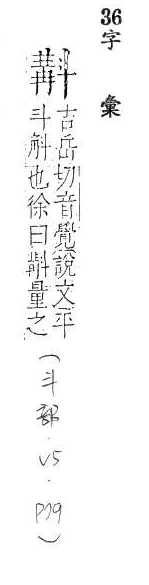 36字 彙
斠
吉岳切音覺說文平
斗斛也徐曰斠量之
(斗部·V5·P79)